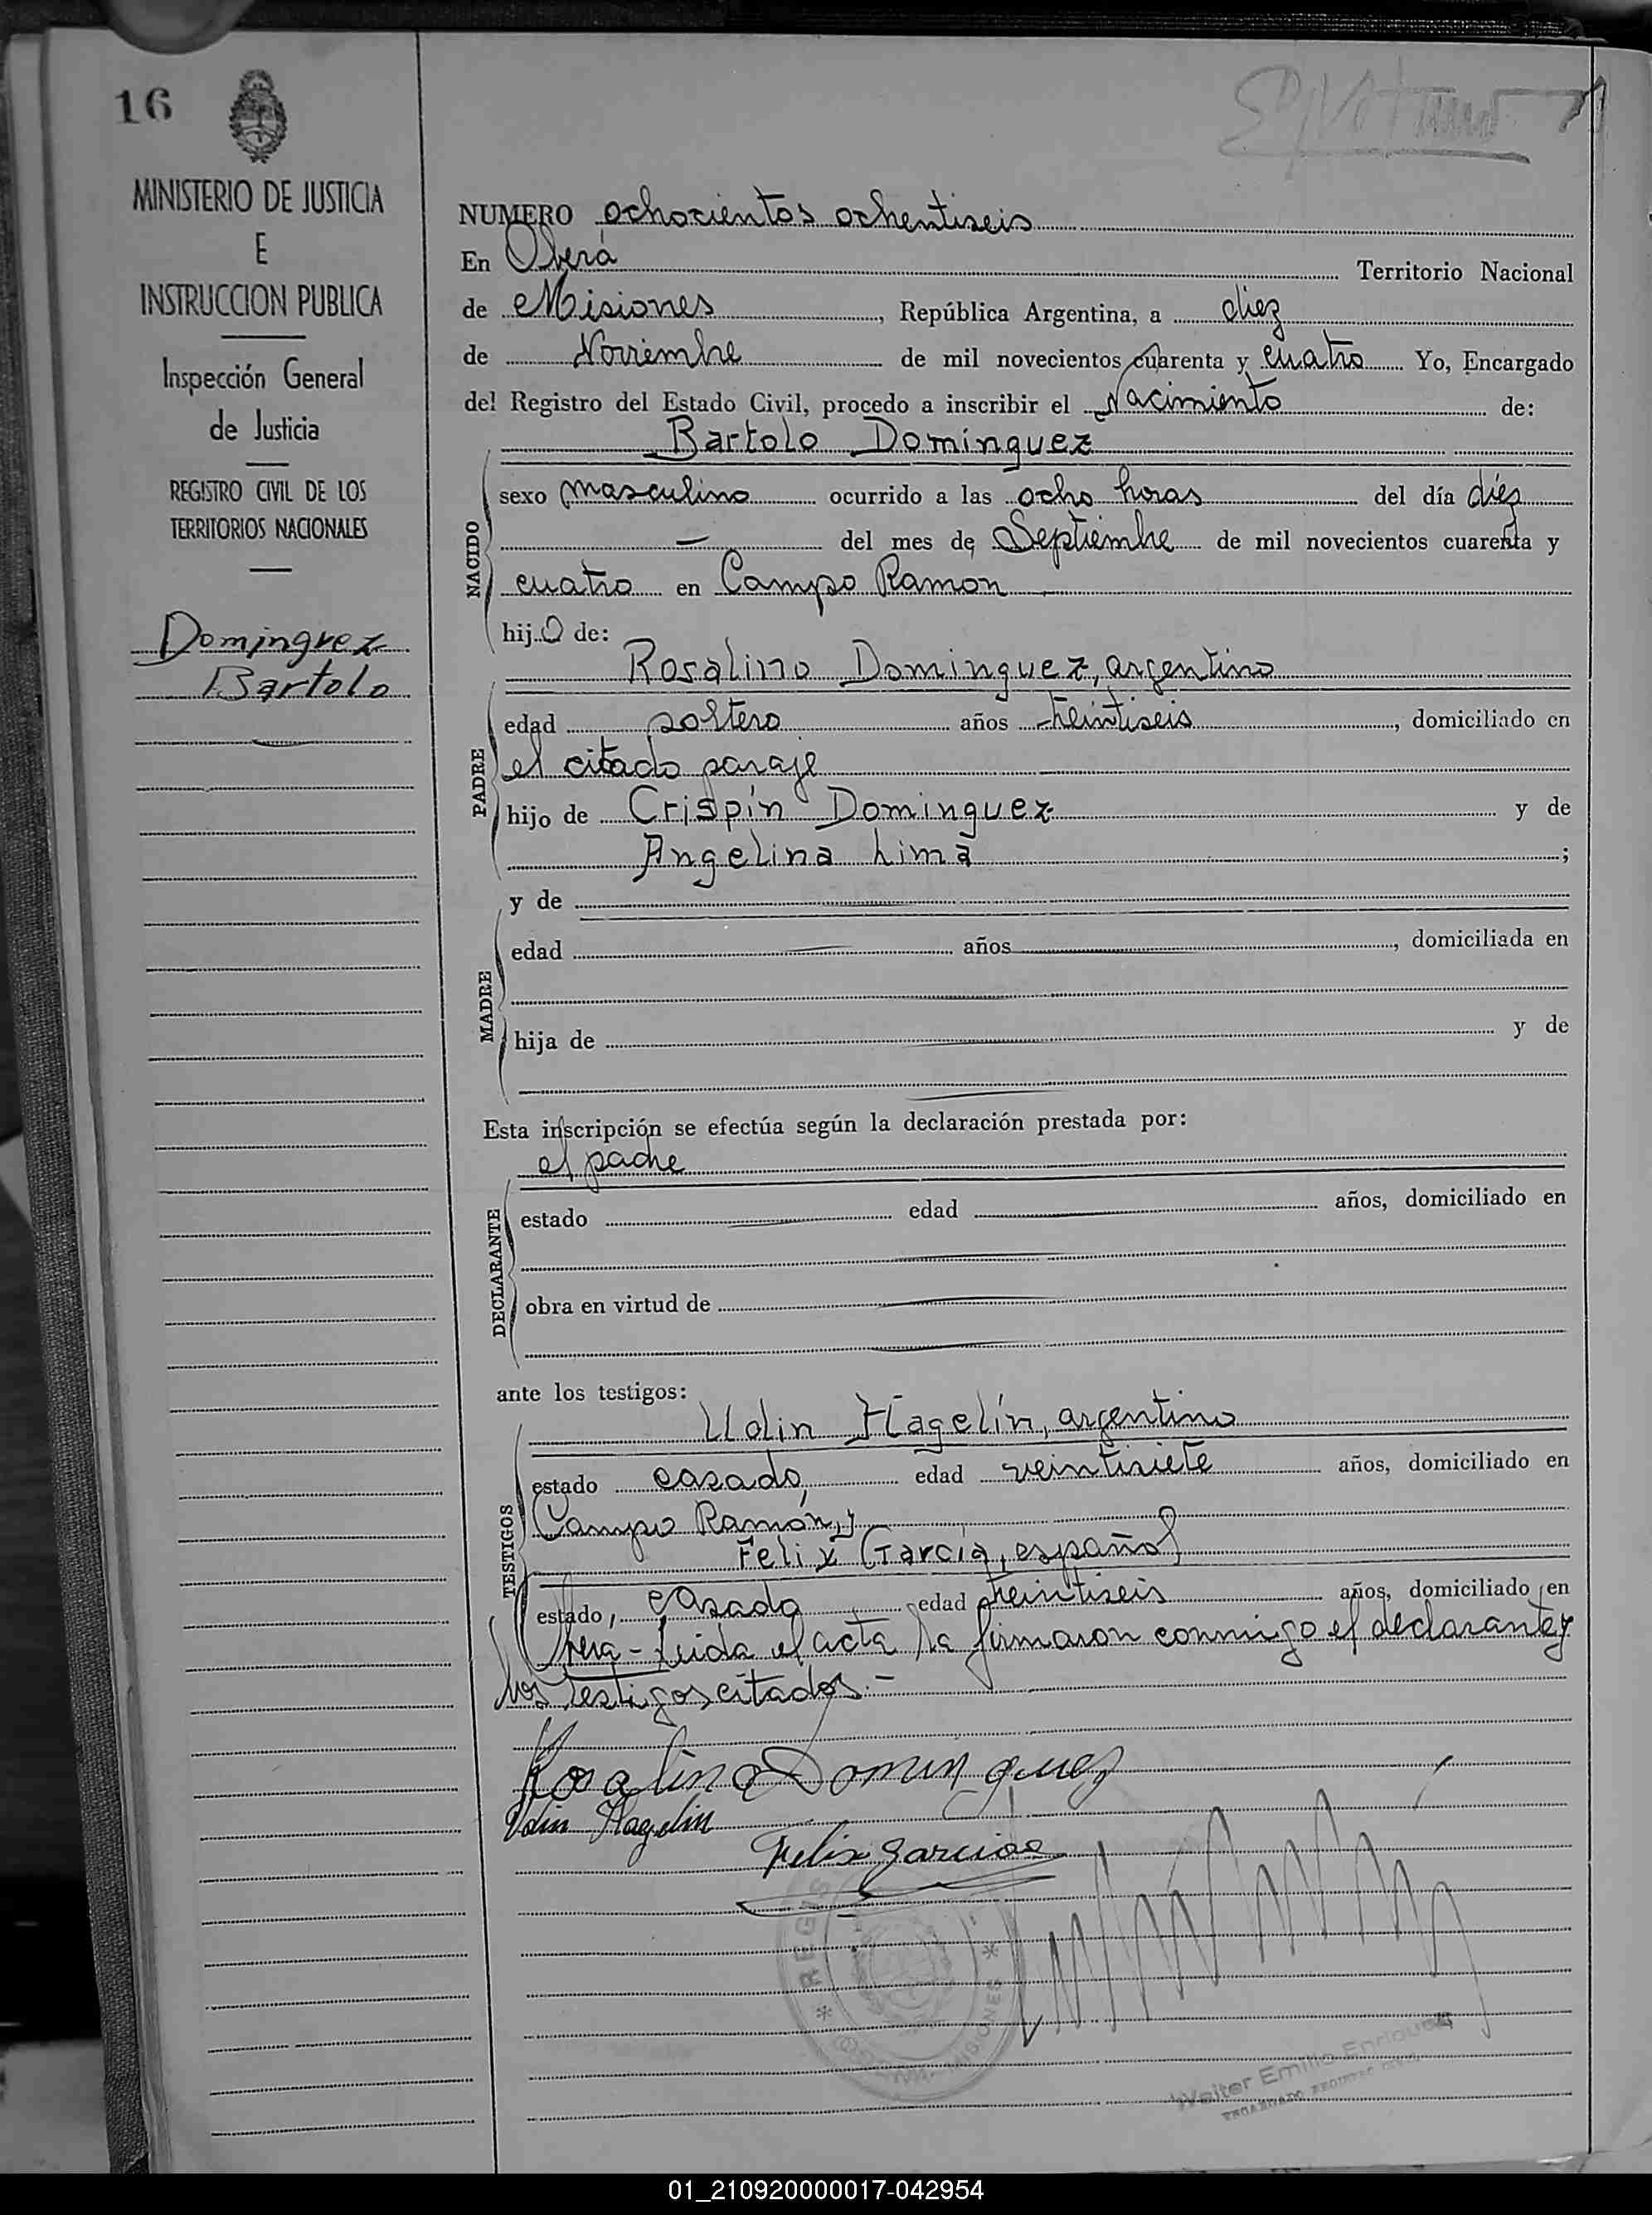 16
MINISTERIO DE JUSTICIA
E
INSTRUCCION PUBLICA
Inspección General
de Justicia
REGISTRO CIVIL DE LOS
TERRITORIOS NACIONALES
Dominguez
Bartolo
NUMERO ochocientos ochentiseis
En Oberá Territorio Nacional
de Misiones, República Argentina, a diez
de Noviembre de mil novecientos cuarenta y cuatro Yo, Encargado
del Registro del Estado Civil, procedo a inscribir el Nacimiento de:
Bartolo Domínguez
NACIDO
sexo masculino ocurrido a las ocho horas del día diez
— del mes de Septiembre de mil novecientos cuarenta y
cuatro en Campo Ramon
hijo de:
Rosalino Dominguez, argentino
PADRE
edad soltero años treintiseis, domiciliado en
el citado paraje
hijo de Crispín Dominguez y de
Angelina Lima;
y de
MADRE
edad años, domiciliada en
hija de y de
Esta inscripción se efectúa según la declaración prestada por:
el padre
DECLARANTE
estado edad años, domiciliado en
obra en virtud de
ante los testigos:
Udin Hagelín, argentino
TESTIGOS
estado casado, edad veintisiete años, domiciliado en
Campo Ramón, y
Felix García, español
estado, casado edad treintiseis años, domiciliado en
Obera - Leida el acta la firmaron conmigo el declarante y
los testigos citados.-
Rosalino Dominguez
Udin Hagelin
Felix Garcia
REGIS
MISIONES
Walter Emilio Enriquez
ENCARGADO REGISTRO CIVIL
01_210920000017-042954